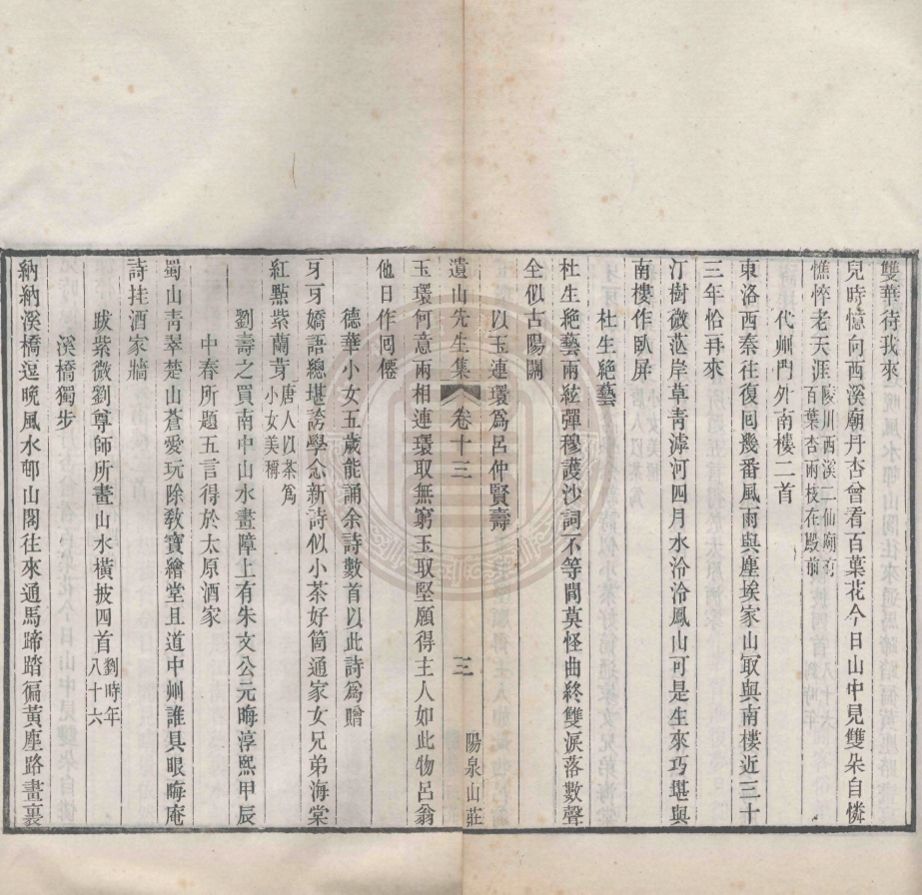 雙華待我來
兒時憶向西溪廟丹杏曾看百葉花今日山中見雙朵自憐
憔悴老天涯陵川西溪二仙廟有百葉杏兩枝在殿前
代州門外南樓二首
東洛西秦往復回幾番風雨與塵埃家山取與南樓近三十
三年恰再來
汀樹微茫岸草青滹河四月水泠泠鳳山可是生來巧堪與
南樓作臥屏
杜生絶藝
杜生絶藝兩絃彈穆護沙詞不等閒莫怪曲終雙淚落數聲
全似古陽關
以玉連環爲呂仲賢壽
遺山先生集 卷十三 三 陽泉山莊
玉環何意兩相連環取無窮玉取堅願得主人如此物呂翁
他日作同僊
德華小女五歲能誦余詩數首以此詩爲贈
牙牙嬌語總堪誇學念新詩似小茶好箇通家女兄弟海棠
紅點紫蘭芽唐人以茶爲小女美稱
劉壽之買南中山水畫障上有朱文公元晦淳熙甲辰
中春所題五言得於太原酒家
蜀山青翠楚山蒼愛玩除教寶繪堂且道中州誰具眼晦庵
詩挂酒家牆
跋紫微劉尊師所畫山水橫披四首劉時年八十六
溪橋獨步
納納溪橋逗晚風水邨山閣往來通馬蹄踏徧黃塵路畫裏